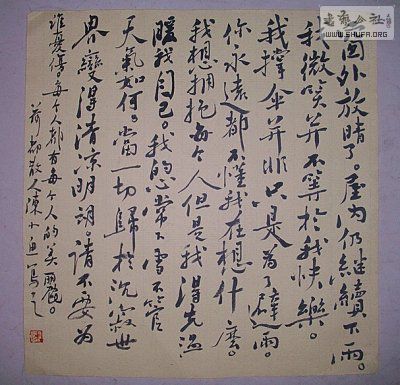 書藝公社
WWW.SHUFA.ORG
窗外放晴了。屋内仍继續下雨。
我微笑并不等於我快樂。
我撑伞并非只是為了避雨。
你永遠都不懂我在想什麽。
我想拥抱每个人但是我得先温
暖我自己。我的心常下雪不管
天氣如何。當一切歸於沉寂世
界變得清凉明朗。请不要為
誰憂傷。每个人都有每个人的美麗。
荷都散人陳小